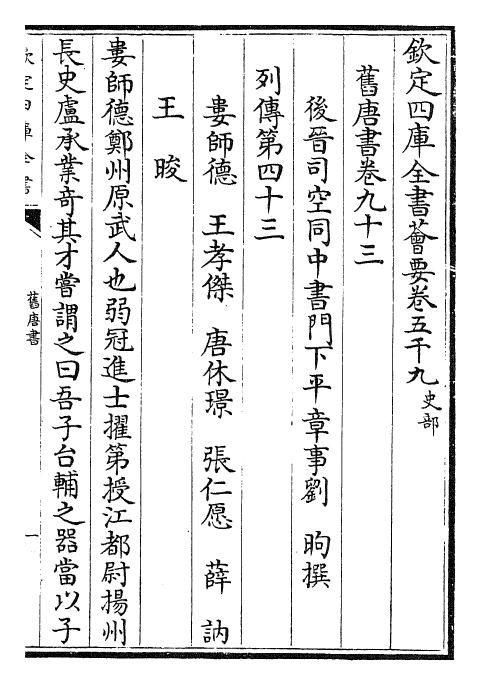 欽定四庫全書薈要卷五千九史部
舊唐書卷九十三
後晉司空同中書門下平章事劉昫撰
列傳第四十三
婁師德 王孝傑 唐休璟 張仁愿 薛訥
王晙
婁師德鄭州原武人也弱冠進士擢第授江都尉揚州
長史盧承業奇其才嘗謂之曰吾子台輔之器當以子
欽定四庫全書
舊唐書
一